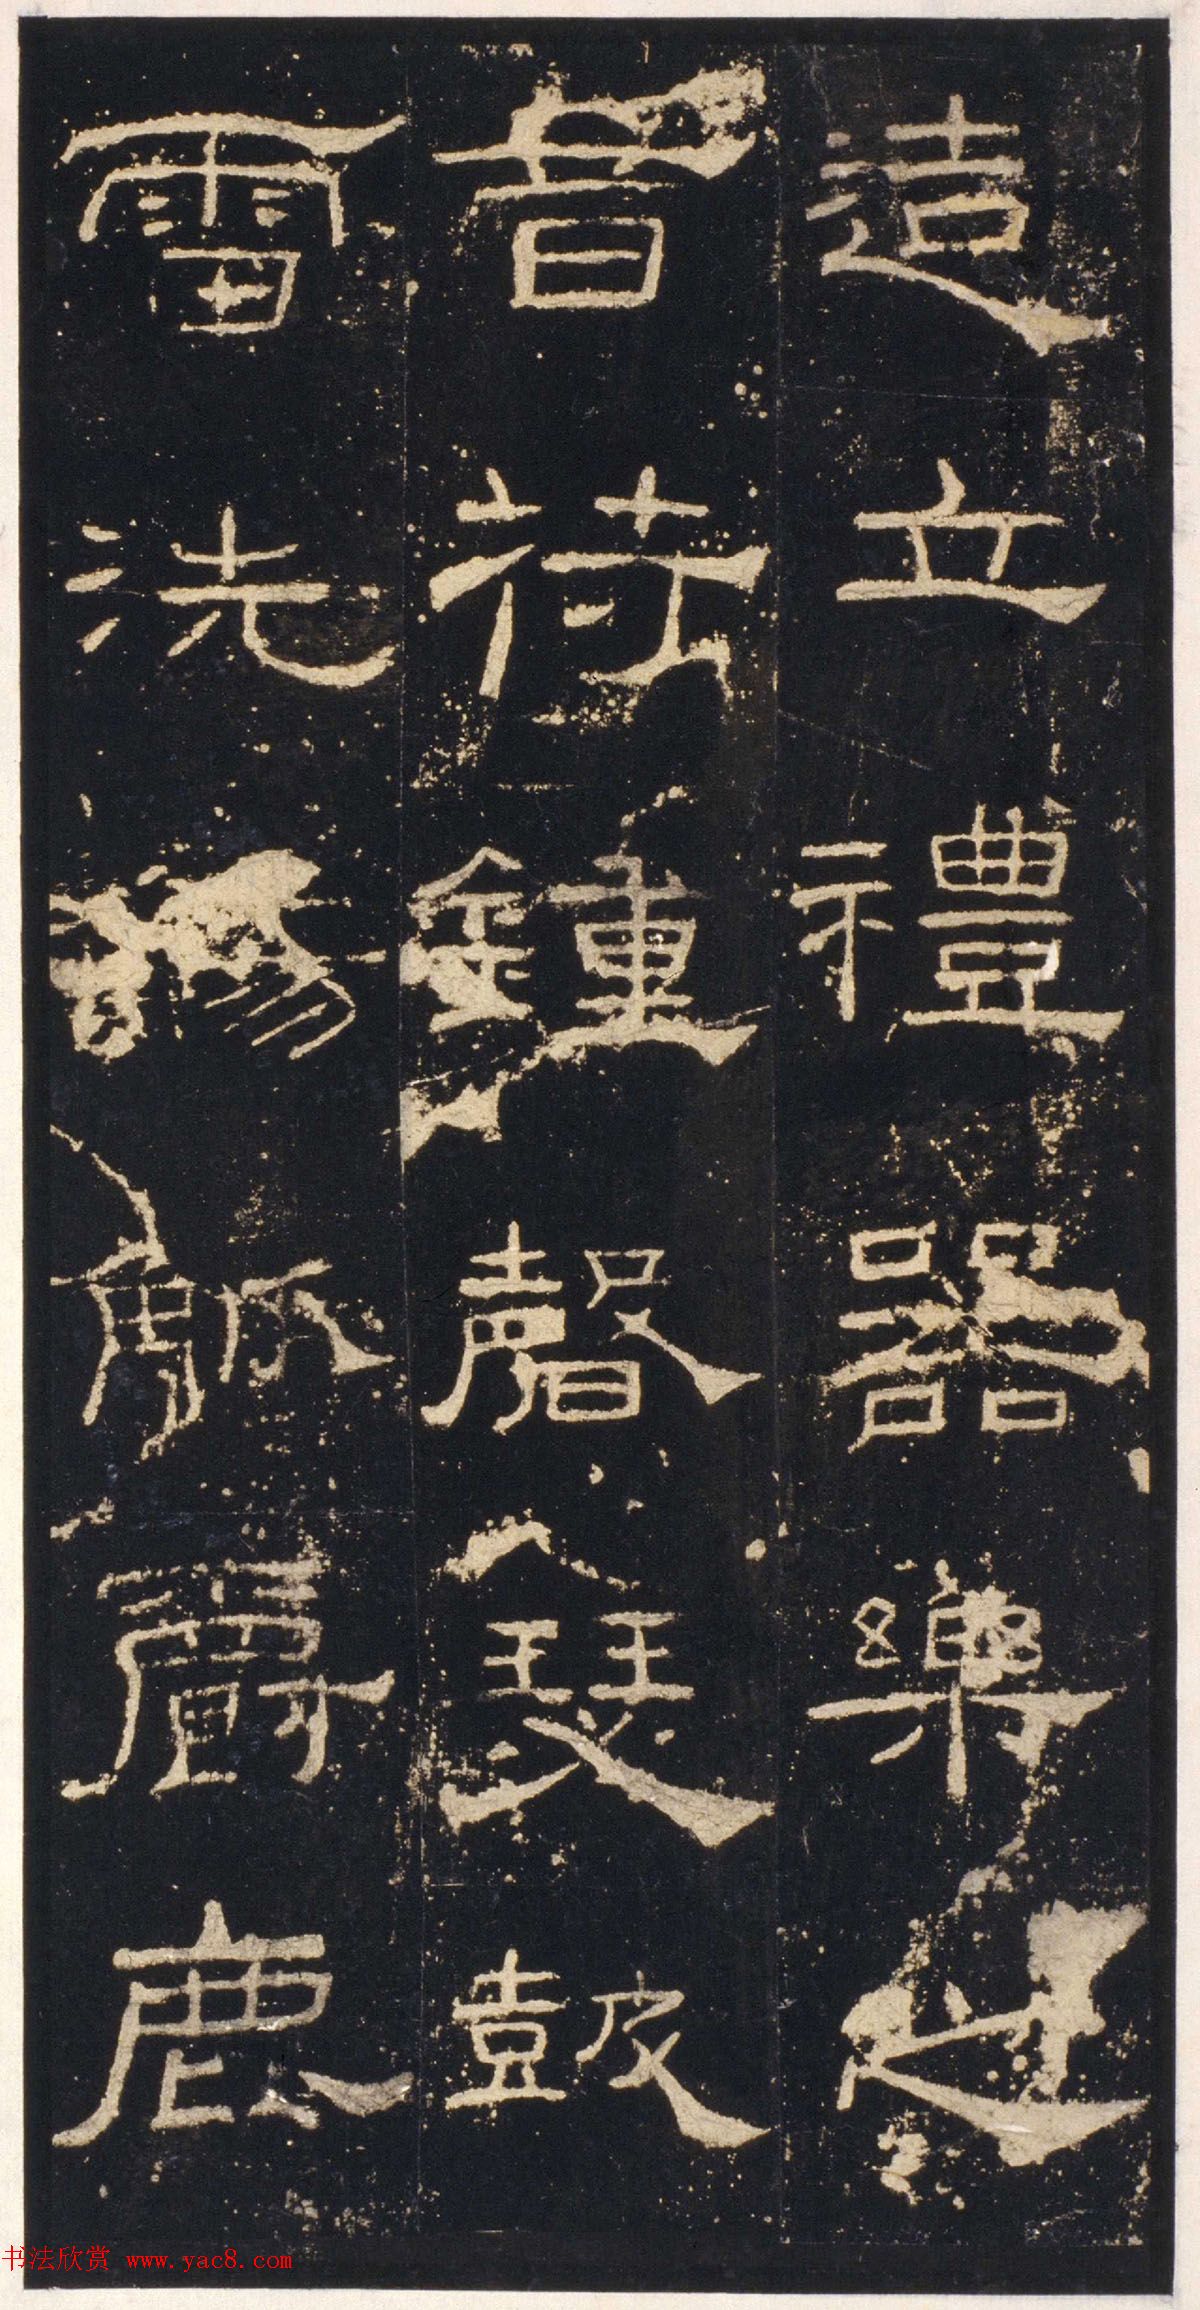 造立禮器樂之
音符鍾磬瑟鼓
雷洗觴觚爵鹿
书法欣赏 www.yac8.com